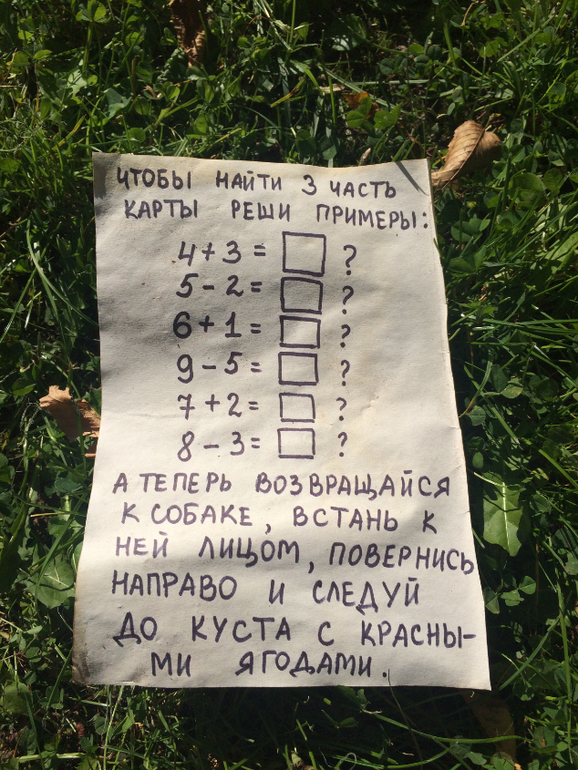 ЧТОБЫ НАЙТИ 3 ЧАСТЬ
КАРТЫ РЕШИ ПРИМЕРЫ:
4+3= ?
5-2= ?
6+1= ?
9-5= ?
7+2= ?
8-3= ?
А ТЕПЕРЬ ВОЗВРАЩАЙСЯ
К СОБАКЕ, ВСТАНЬ К
НЕЙ ЛИЦОМ, ПОВЕРНИСЬ
НАПРАВО И СЛЕДУЙ
ДО КУСТА С КРАСНЫ-
МИ ЯГОДАМИ.